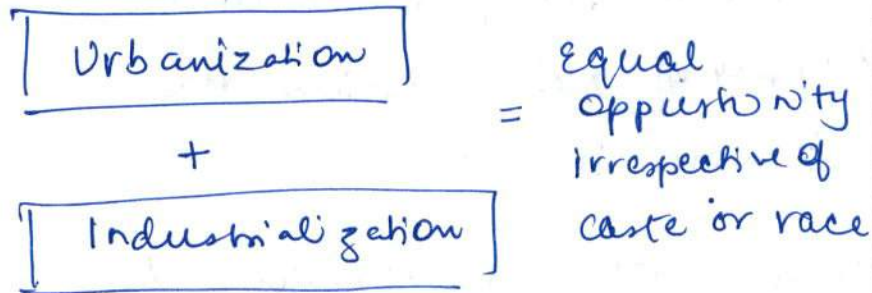 Urbanization
+
Industrialization
= Equal
opportunity
irrespective of
caste or race